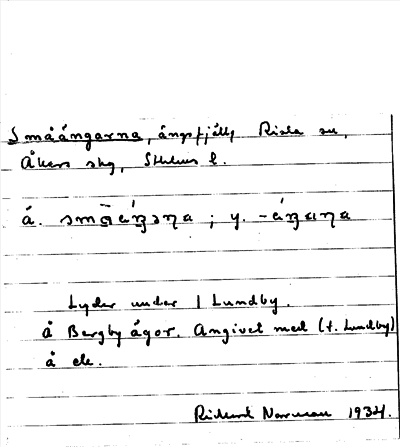 Småängarna, ängsfjäll, Riala sn,
Åkers skg, Sthlms l.
å. ; y.
Lyder under 1 Lundby.
å Bergby ägor. Angivet med (t. Lundby)
å ek.
Rickard Norrman 1934.